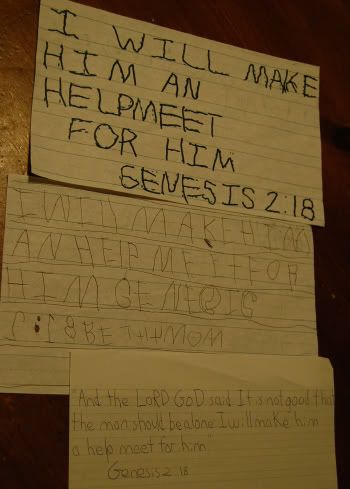 I WILL MAKE
HIM AN
HELPMEET
FOR HIM
GENESIS 2:18
I WILL MAKE HIM
AN HELP MEET FOR
HIM GENESIS
2:18 BETH MOM
"And the LORD GOD said It is not good that
the man should be alone I will make him
a help meet for him."
Genesis 2:18